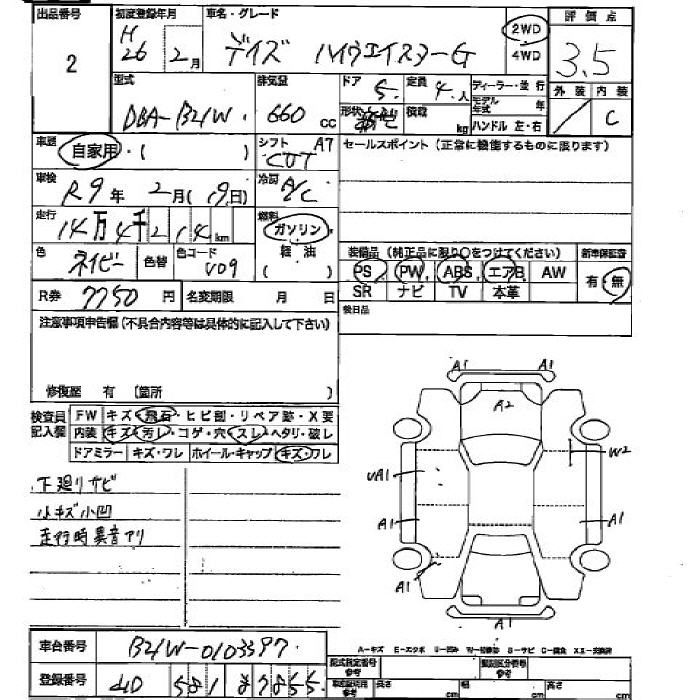 出品番号 初度登録年月 車名・グレード 評価点
2 H 26 2月 デイズ ハイウェイスターG 2WD 4WD 3.5
型式 排気量 ドア 定員 ディーラー・並行 外装 内装
DBA-B21W 660cc 5 4人 モデル年式 年 C
形状 積載 kg ハンドル 左・右
車歴 自家用・( ) シフト A7 CVT セールスポイント(正常に機能するものに限ります)
車検 R9年2月(19日) 冷房 A/C
走行 14万4千214km 燃料 ガソリン 軽油 ( )
色 ネイビー 色替 色コード V09
装備品(純正品に限り○をつけてください) 新車保証書
PS PW ABS エアB AW 有・無
SR ナビ TV 本革
R券 7750円 名変期限 月 日 後日品
注意事項申告欄(不具合内容等は具体的に記入して下さい)
修復歴 有 〔箇所 〕
検査員記入欄 FW キズ・飛石・ヒビ割・リペア跡・X要
内装 キズ・汚レ・コゲ・穴・スレ・ヘタリ・破レ
ドアミラー キズ・ワレ ホイール・キャップ キズ・ワレ
下廻りサビ
小キズ小凹
走行時異音アリ
A1 A1
A2
W2
UA1
A1 A1
A1
A1
車台番号 B21W-0103397
A-キズ E-エクボ U-凹み W-補修跡 S-サビ C-腐食 XX-交換済
登録番号
型式指定番号 参考 類別区分番号
参考 長さ cm 幅 cm 高さ cm